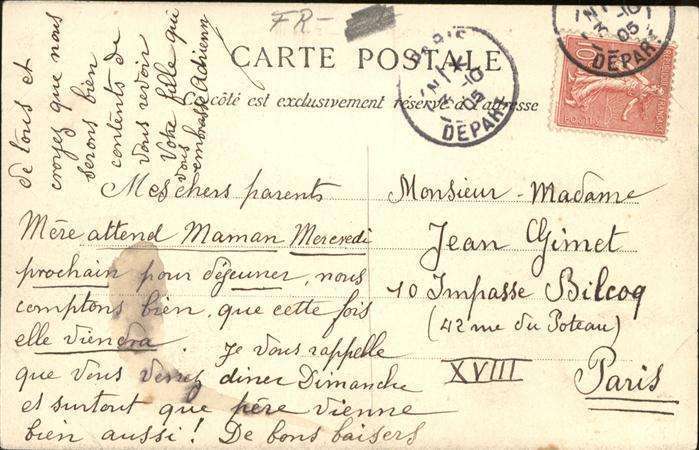 FR-
CARTE POSTALE
Ce côté est exclusivement réservé à l'adresse
PARIS
3-10
05
DEPART
3-10
05
DEPART
10
POSTES
Mes chers parents
Mère attend Maman Mercredi
prochain pour déjeuner, nous
comptons bien, que cette fois
elle viendra. Je vous rappelle
que vous venez diner Dimanche
et surtout que père vienne
bien aussi! De bons baisers
de tous et
croyez que nous
serons bien
contents de
vous revoir
Votre fille qui
vous
embrasse Adrienne
Monsieur - Madame
Jean Gimet
10 Impasse Bilcoq
(42 rue du Poteau)
XVIII
Paris